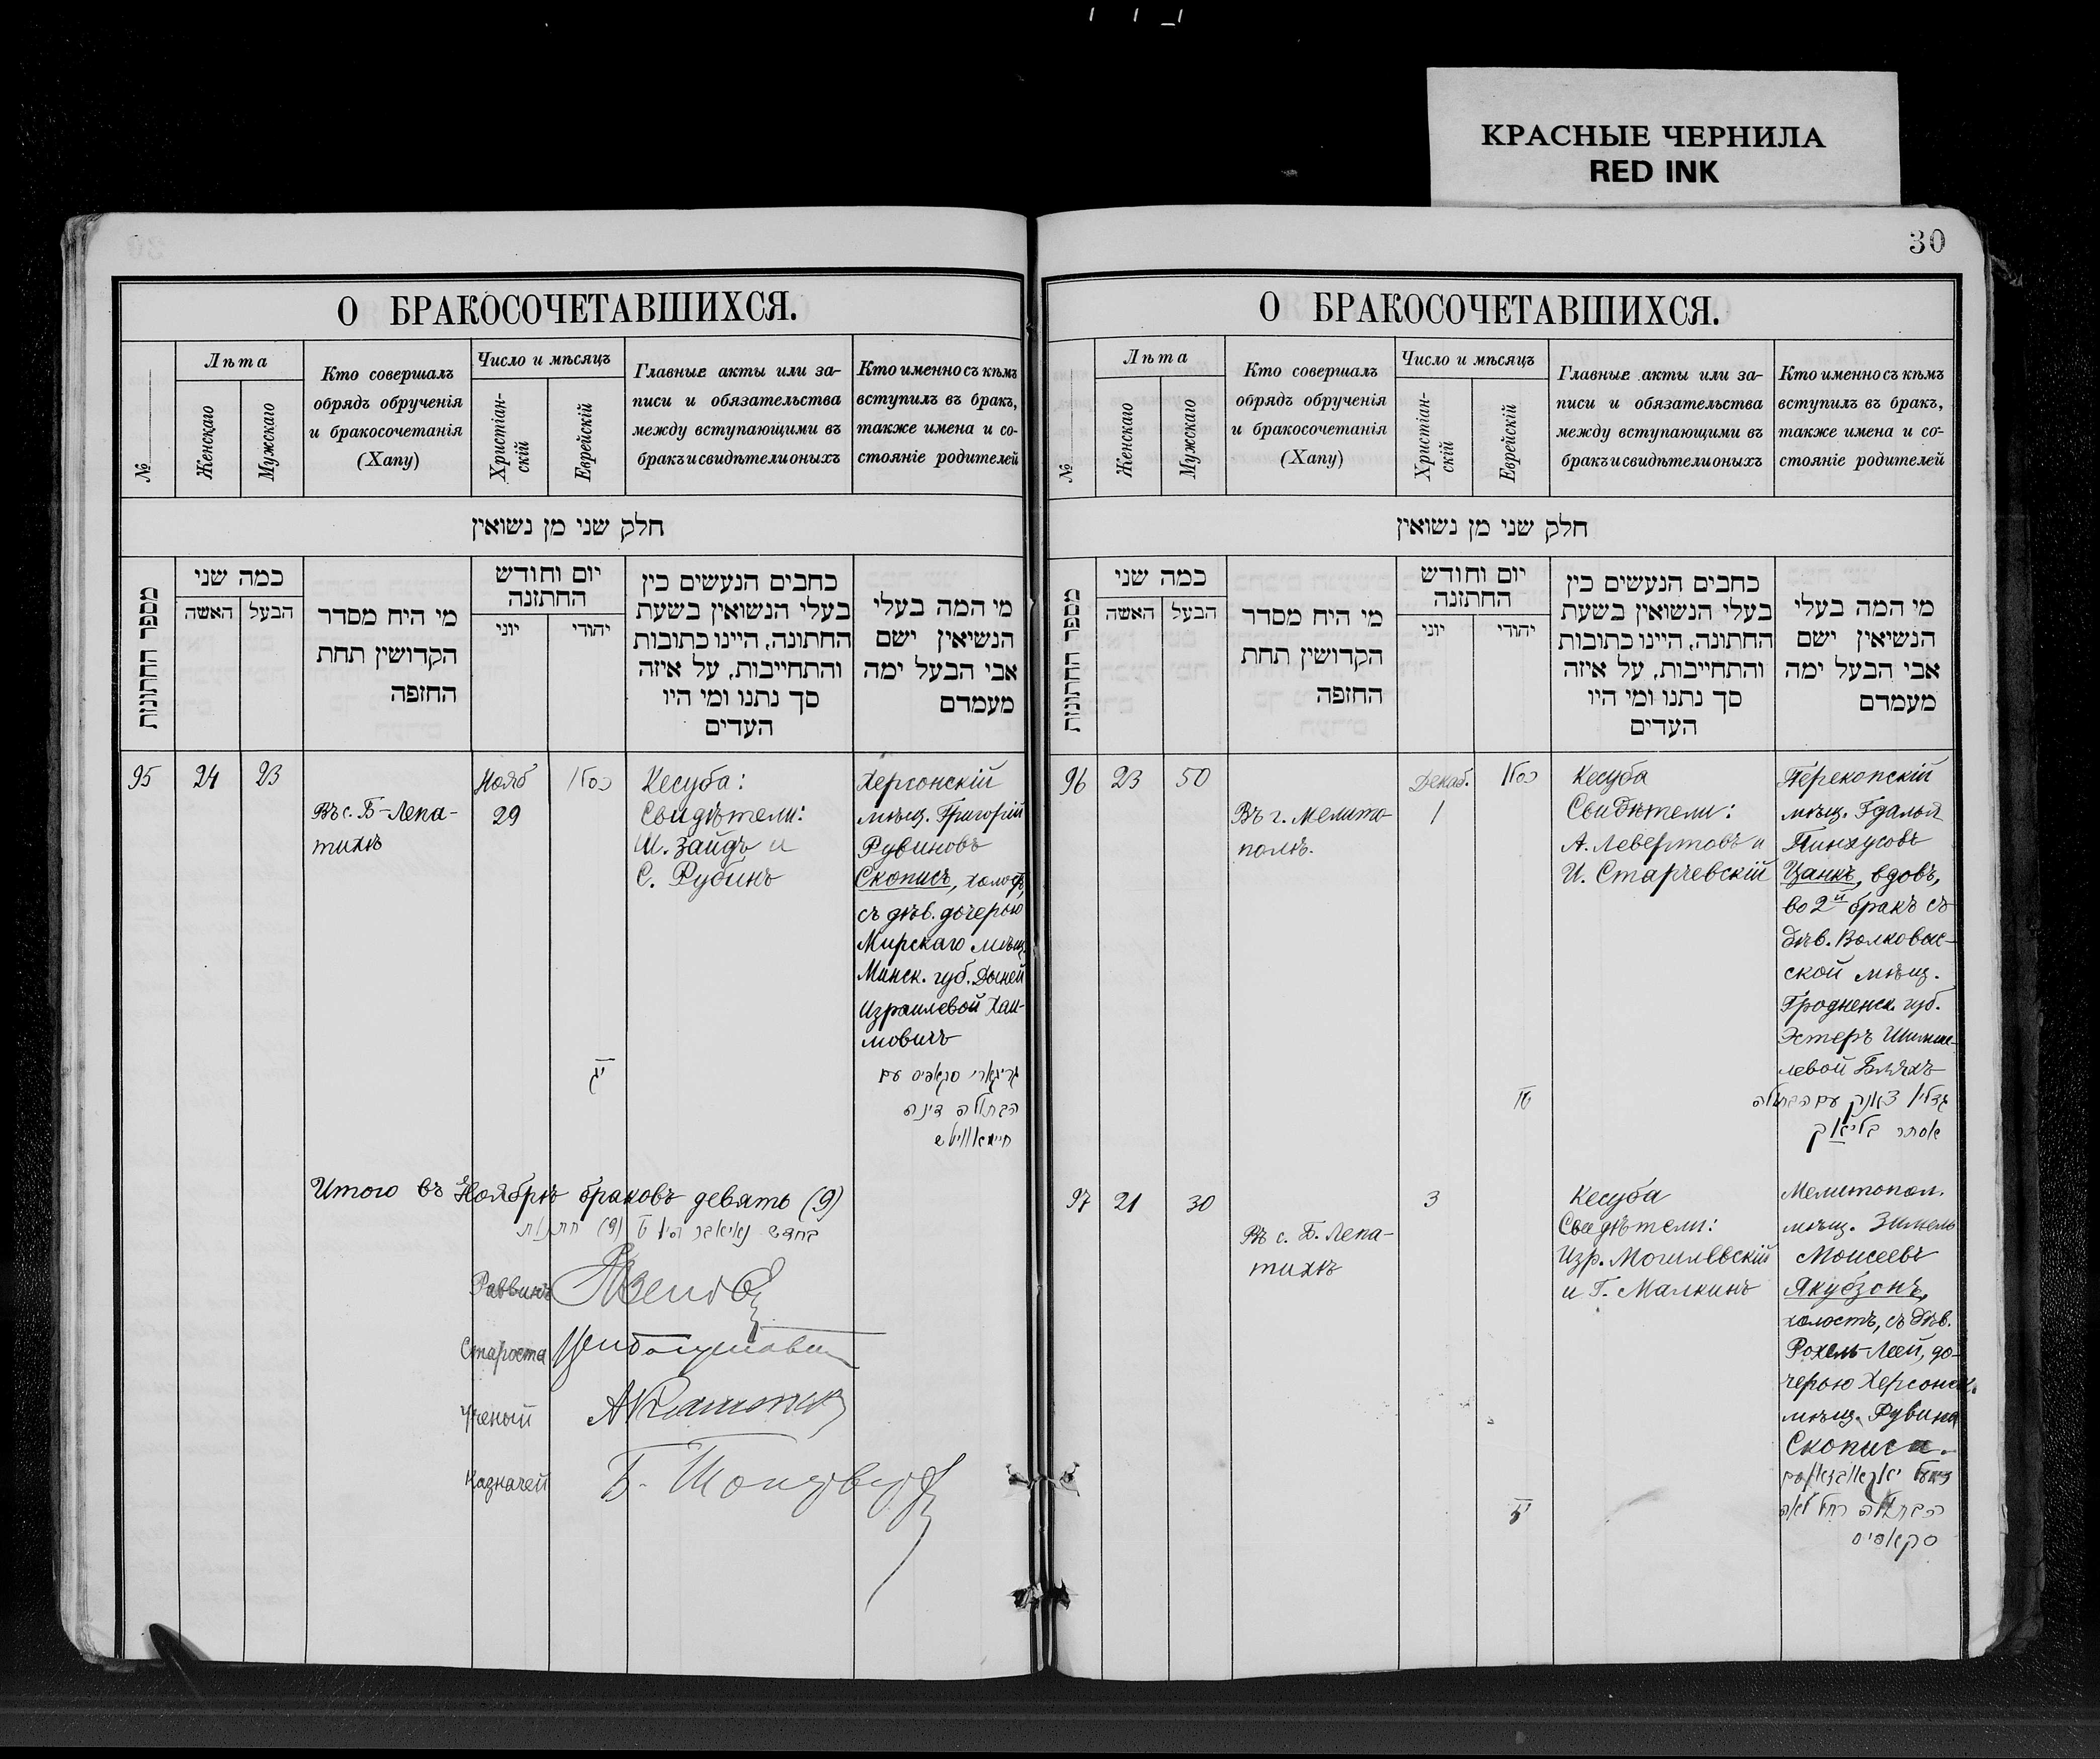 КРАСНЫЕ ЧЕРНИЛА
RED INK
О БРАКОСОЧЕТАВШИХСЯ.
№
Лѣта
Женскаго
Мужскаго
Кто совершалъ
обрядъ обрученія
и бракосочетанія
(Хапу)
Число и мѣсяцъ
Христіан-
скій
Еврейскій
Главные акты или за-
писи и обязательства
между вступающими въ
бракъ и свидѣтели оныхъ
Кто именно съ кѣмъ
вступилъ въ бракъ,
также имена и со-
стояніе родителей
חלק שני מן נשואין
מספר החתונות
כמה שני
האשה
הבעל
מי היח מסדר
הקדושין תחת
החזפה
יום וחודש
החתזנה
יוני
יהודי
כחבים הנעשים כין
בעלי הנשואין בשעת
החתונה, היינו כתובות
והתחייבות, על איזה
סך נתנו ומי היו
העדים
מי המה בעלי
הנשיאין ישם
אבי הבעל ימה
מעמדם
95
24
23
Въ с. Б-Лепа-
тихѣ
Нояб
29
כסלו
יג
Кесуба:
Свидѣтели:
Ш. Зайдъ и
С. Рубинъ
Херсонскій
мѣщ. Григорій
Рувиновъ
Скописъ, холост,
съ дѣв. дочерью
Мирскаго мѣщ.
Минск. губ. Дыней
Израилевой Хаи-
мовичъ
גריגארי סקאפיס עם
הבתולה דינה
חיימאוויטש
Итого въ Ноябрѣ браковъ девять (9)
בחדש נאיאבר היו ט (9) חתנות
Раввинъ
Староста
Ученый
Казначей
30
О БРАКОСОЧЕТАВШИХСЯ.
№
Лѣта
Женскаго
Мужскаго
Кто совершалъ
обрядъ обрученія
и бракосочетанія
(Хапу)
Число и мѣсяцъ
Христіан-
скій
Еврейскій
Главные акты или за-
писи и обязательства
между вступающими въ
бракъ и свидѣтели оныхъ
Кто именно съ кѣмъ
вступилъ въ бракъ,
также имена и со-
стояніе родителей
חלק שני מן נשואין
מספר החתונות
כמה שני
האשה
הבעל
מי היח מסדר
הקדושין תחת
החזפה
יום וחודש
החתזנה
יוני
יהודי
כחבים הנעשים כין
בעלי הנשואין בשעת
החתונה, היינו כתובות
והתחייבות, על איזה
סך נתנו ומי היו
העדים
מי המה בעלי
הנשיאין ישם
אבי הבעל ימה
מעמדם
96
23
50
Въ г. Мелито-
полѣ.
Декаб.
1
כסלו
טו
Кесуба
Свидѣтели:
А. Левертовъ и
И. Старчевскій
Перекопскій
мѣщ. Гдалья
Пинхусовъ
Цанкъ, вдовъ,
во 2й бракъ съ
дѣв. Волковыс-
ской мѣщ.
Гродненск. губ.
Эстеръ Шимше-
левой Блѣхъ
גדליה צאנק עם הבתולה
אסתר בליאך
97
21
30
Въ с. Б. Лепа-
тихѣ
3
Кесуба
Свидѣтели:
Изр. Могилевскій
и Г. Малкинъ
Мелитопол.
мѣщ. Зимель
Моисеевъ
Якубзонъ,
холостъ, съ дѣв.
Рохель-Леей, до-
черью Херсонск.
мѣщ. Рувина
Скописа.
הבתולה רחל לאה
סקאפיס